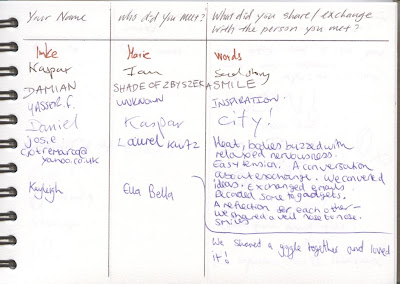 Your Name
Who did you meet?
What did you share/exchange
with the person you met?
Imke
Marie
words
Kaspar
Ian
Sad story
DAMIAN
SHADE OF ZBYSZEK
A SMILE
YASSER F.
UNKNOWN
INSPIRATION.
Daniel
Kaspar
City!
josie
Laurel
Heat, bodies buzzed with
yahoo.co.uk
relaxed nervousness.
Easy tension. A conversation
about exchange. We converted
ideas. Exchanged emails
some gadgets.
A reflection for each other -
we shared over nose to nose.
smiles
Kayleigh
Ella Bella
We shared a giggle together and loved
it!